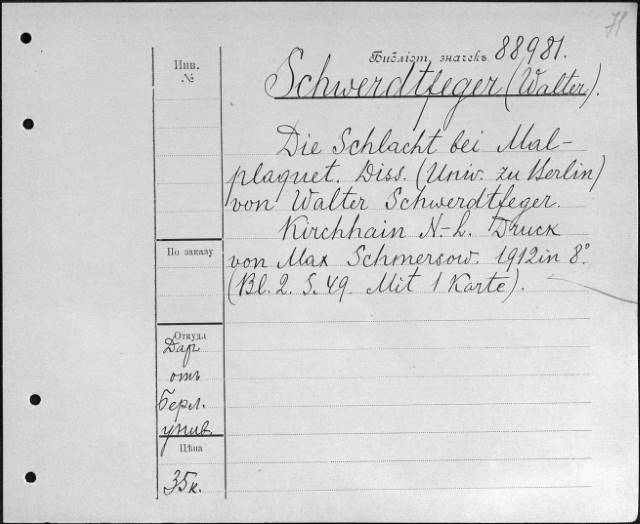 71
Библіот. значекъ 88981.
Инв.
№
Schwerdtfeger (Walter).
Die Schlacht bei Mal-
plaquet. Diss. (Univ. zu Berlin)
von Walter Schwerdtfeger.
Kirchhain N-L. Druck
von Max Schmersow. 1912 in 8°.
(Bl. 2. S. 49. Mit 1 Karte).
По заказу
Откуда
Дар
отъ
Берл.
унив.
Цѣна
35 к.